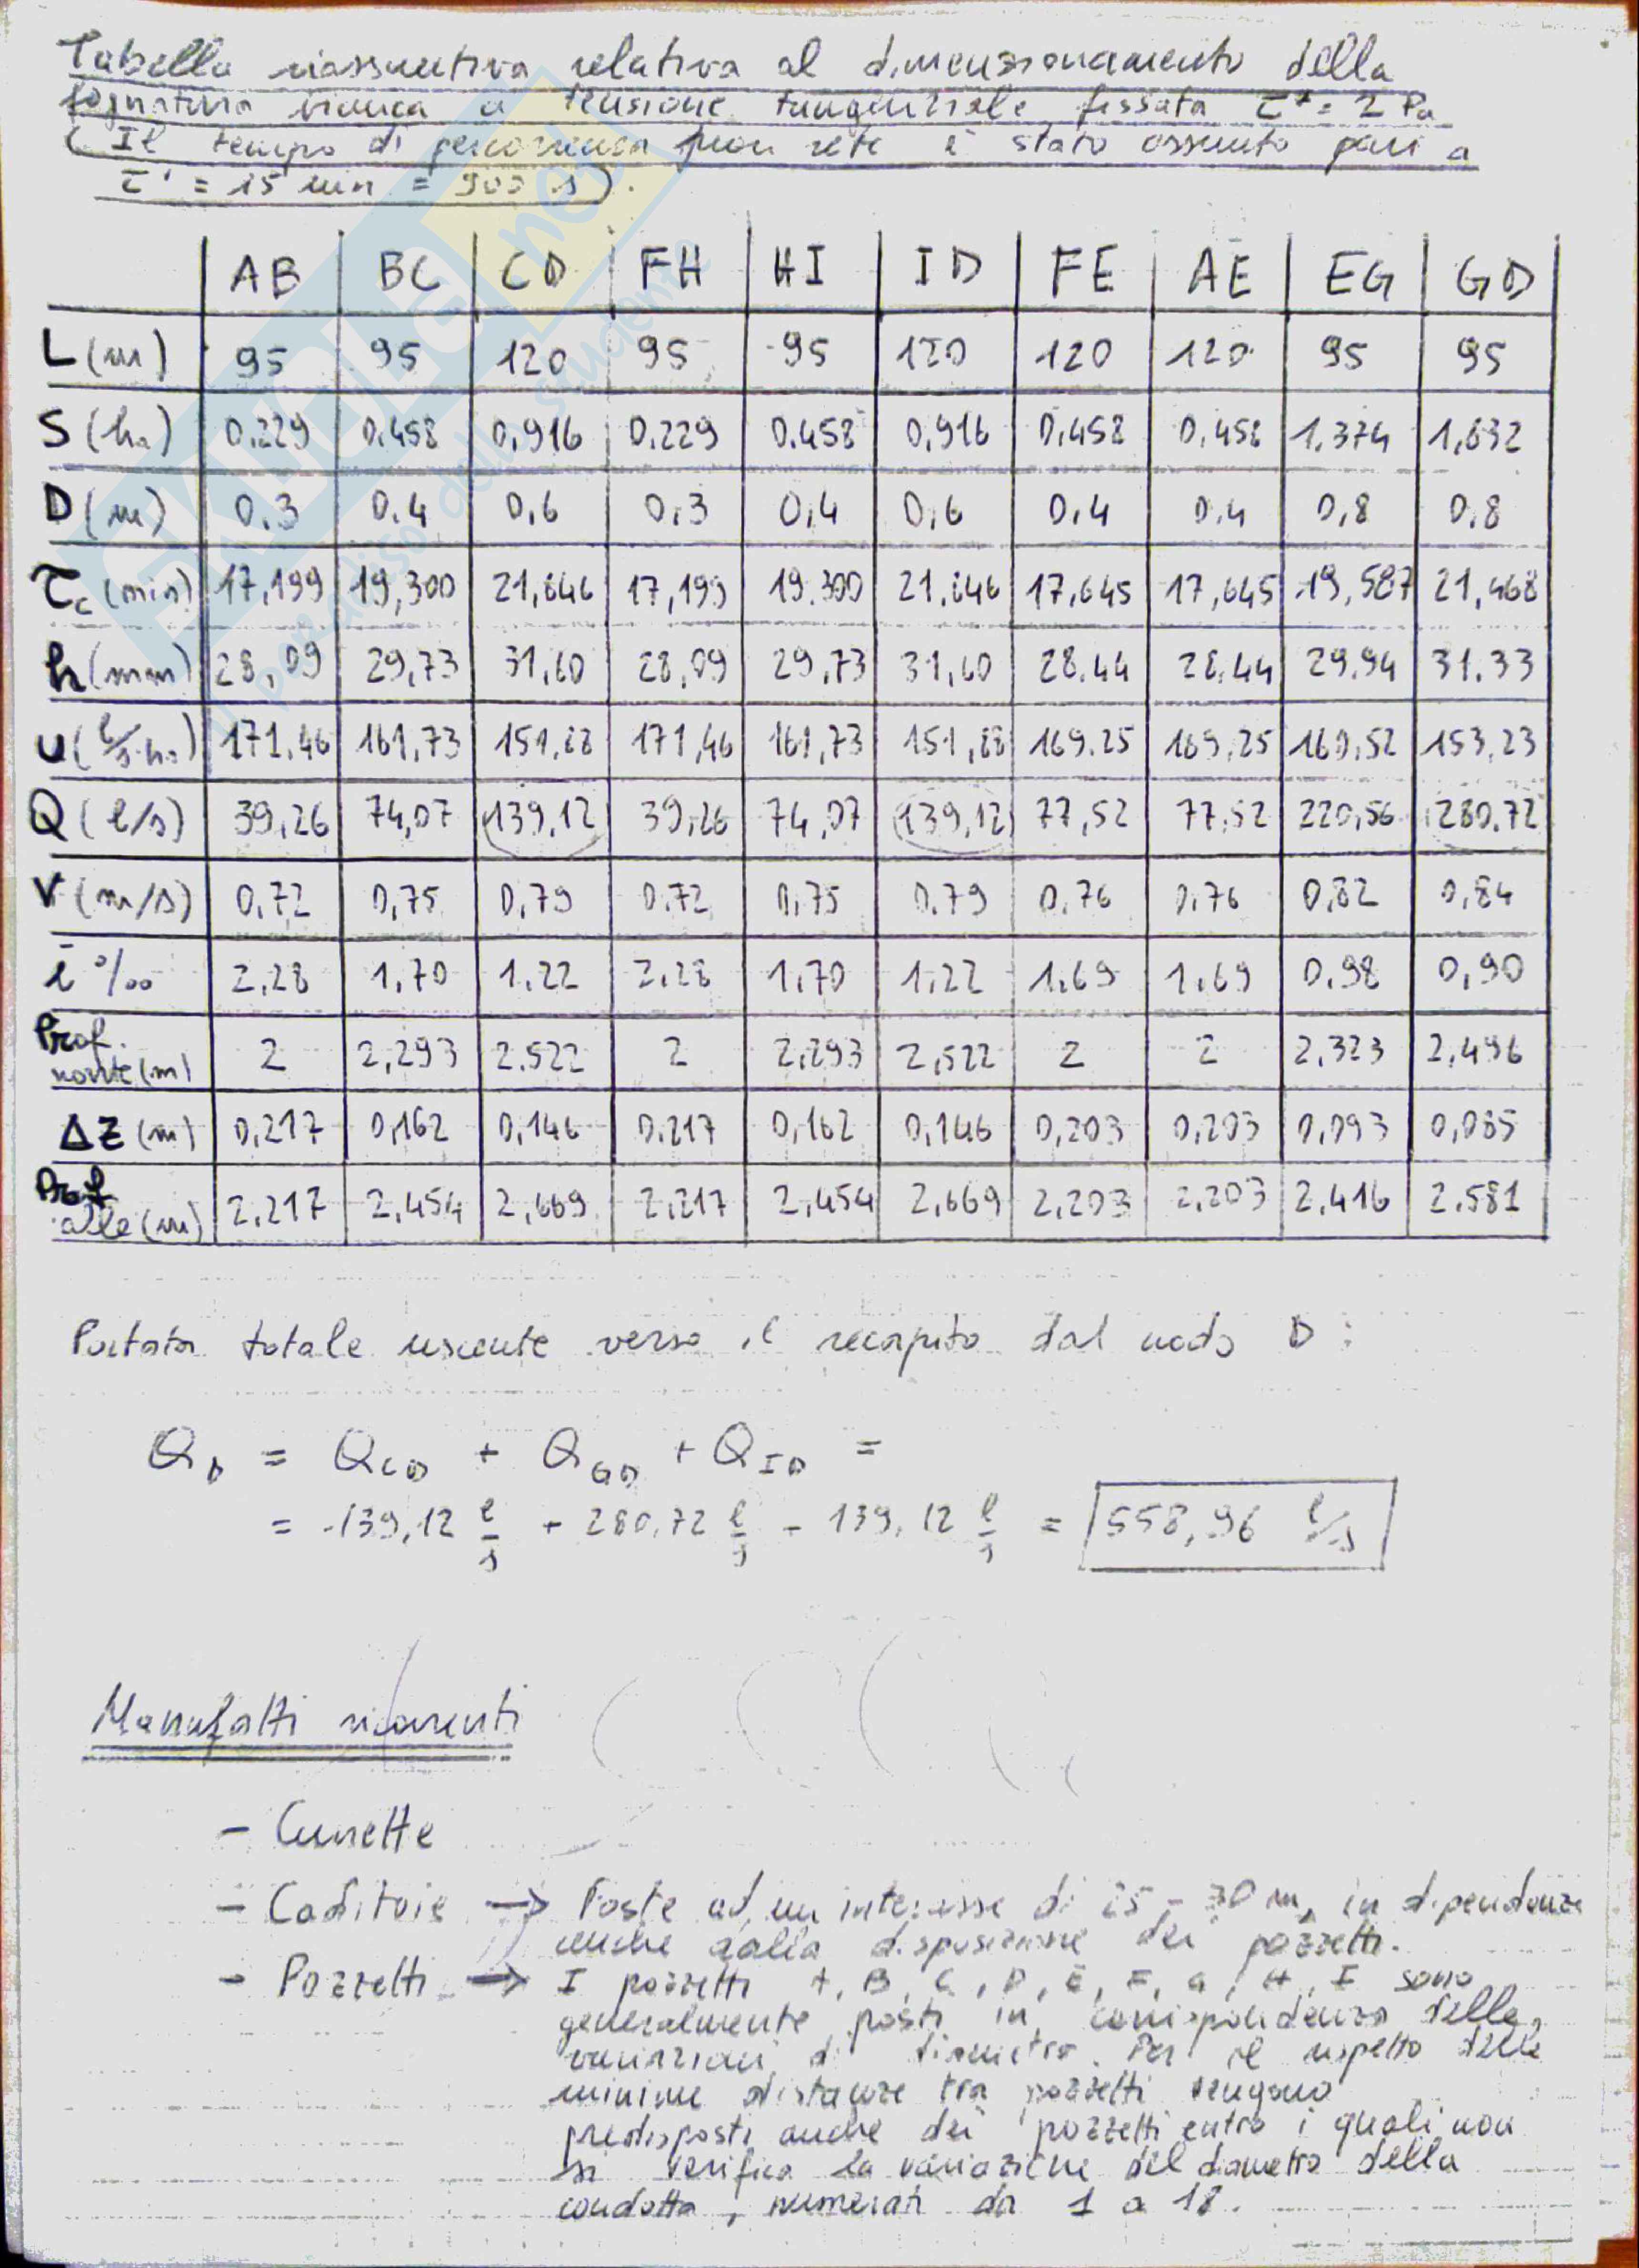 Tabella riassuntiva relativa al dimensionamento della
fognatura bianca a tensione tangenziale fissata τ* = 2 Pa
(Il tempo di percorrenza fuori rete è stato assunto pari a
τ' = 15 min = 900 s).
AB BC CD FH HI ID FE AE EG GD
L (m) 95 95 120 95 95 120 120 120 95 95
S (ha) 0.229 0.458 0,916 0.229 0.458 0,916 0,458 0,458 1.374 1,832
D (m) 0.3 0.4 0,6 0,3 0,4 0,6 0,4 0.4 0,8 0.8
τc (min) 17,199 19,300 21,846 17,199 19.300 21.846 17,645 17,645 19,587 21,468
h (mm) 28,09 29,73 31,60 28,09 29,73 31,60 28.44 28.44 29.94 31.33
u (l/s·ha) 171,46 161,73 151,88 171,46 161,73 151,88 169.25 169,25 160,52 153,23
Q (l/s) 39,26 74,07 139,12 39,26 74,07 139,12 77,52 77,52 220,56 280.72
V (m/s) 0,72 0,75 0,79 0.72 0,75 0.79 0,76 0,76 0,82 0,84
i ‰ 2,28 1,70 1.22 2,28 1,70 1,22 1,69 1,69 0,98 0,90
Prof. monte (m) 2 2,293 2.522 2 2,293 2,522 2 2 2,323 2,496
ΔZ (m) 0,217 0,162 0,146 0.217 0,162 0,146 0,203 0,203 0,093 0,085
Prof valle (m) 2,217 2,454 2,669 2,217 2,454 2,669 2,203 2,203 2,416 2.581
Portata totale uscente verso il recapito dal nodo D:
Q_D = Q_CD + Q_GD + Q_ID =
= 139,12 l/s + 280,72 l/s + 139,12 l/s = 558,96 l/s
Manufatti ricorrenti
- Cunette
- Caditoie → Poste ad un interasse di 25 - 30 m, in dipendenza
anche dalla disposizione dei pozzetti.
- Pozzetti → I pozzetti A, B, C, D, E, F, G, H, I sono
generalmente posti in corrispondenza delle
variazioni di diametro. Per il rispetto delle
minime distanze tra pozzetti vengono
predisposti anche dei pozzetti entro i quali non
si verifica la variazione del diametro della
condotta, numerati da 1 a 18.